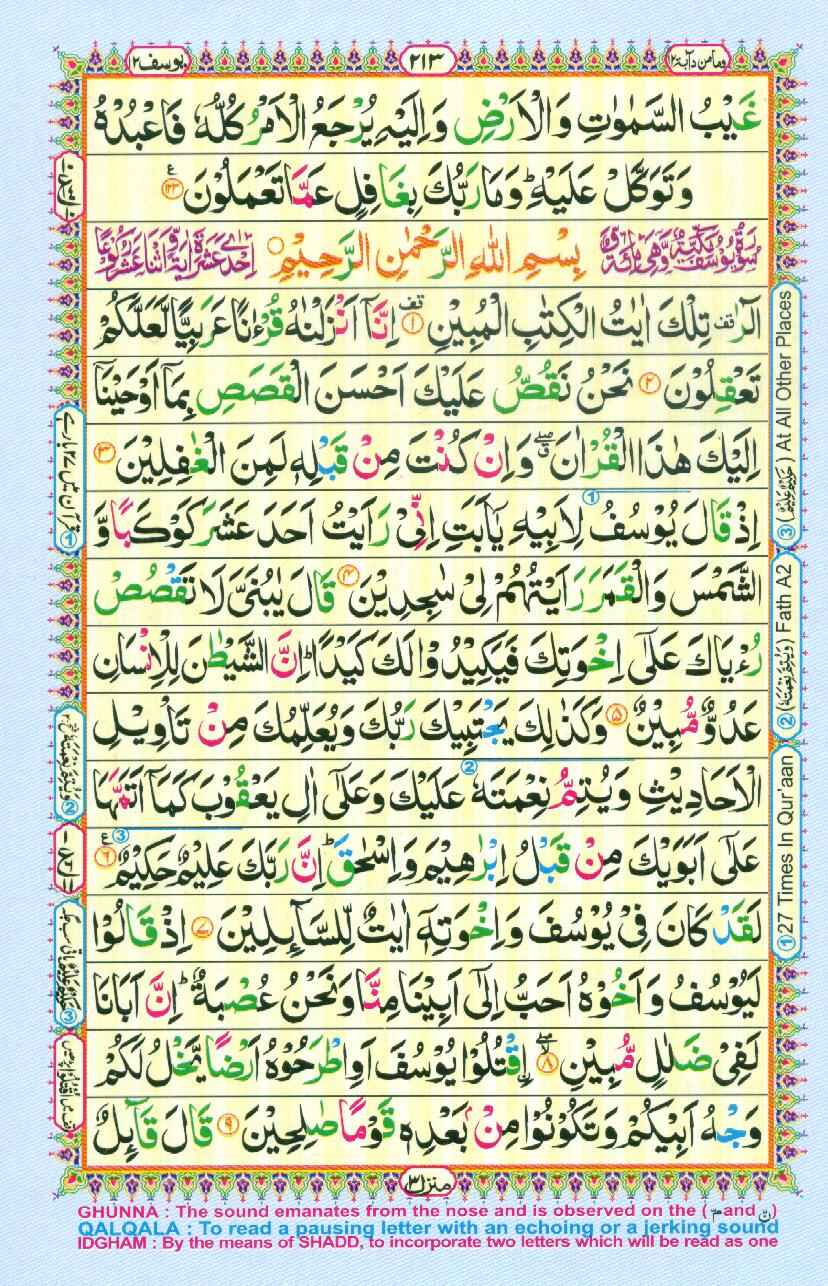 وما من دآبة ١٢ ٢١٣ يوسف ١٢
غَيْبُ السَّمٰوٰتِ وَالْاَرْضِ وَاِلَيْهِ يُرْجَعُ الْاَمْرُ كُلُّهٗ فَاعْبُدْهُ
وَتَوَكَّلْ عَلَيْهِ ؕ وَمَا رَبُّكَ بِغَافِلٍ عَمَّا تَعْمَلُوْنَ ۧ ﴿١٢٣﴾
سُوْرَةُ يُوْسُفَ مَكِّيَّةٌ وَّهِيَ مِائَةٌ وَّ بِسْمِ اللّٰهِ الرَّحْمٰنِ الرَّحِيْمِ ○ اِحْدٰى عَشَرَةَ اٰيَةً وَّاثْنَا عَشَرَ رُكُوْعًا
الٓرٰ ࣞ تِلْكَ اٰيٰتُ الْكِتٰبِ الْمُبِيْنِ ࣞ ﴿١﴾ اِنَّاۤ اَنْزَلْنٰهُ قُرْءٰنًا عَرَبِيًّا لَّعَلَّكُمْ
تَعْقِلُوْنَ ﴿٢﴾ نَحْنُ نَقُصُّ عَلَيْكَ اَحْسَنَ الْقَصَصِ بِمَاۤ اَوْحَيْنَاۤ
اِلَيْكَ هٰذَا الْقُرْاٰنَ ۖۗ وَاِنْ كُنْتَ مِنْ قَبْلِهٖ لَمِنَ الْغٰفِلِيْنَ ﴿٣﴾
اِذْ قَالَ يُوْسُفُ ① لِاَبِيْهِ يٰۤاَبَتِ اِنِّيْ رَاَيْتُ اَحَدَ عَشَرَ كَوْكَبًا وَّ
الشَّمْسَ وَالْقَمَرَ رَاَيْتُهُمْ لِيْ سٰجِدِيْنَ ﴿٤﴾ قَالَ يٰبُنَيَّ لَا تَقْصُصْ
رُءْيَاكَ عَلٰۤى اِخْوَتِكَ فَيَكِيْدُوْا لَكَ كَيْدًا ؕ اِنَّ الشَّيْطٰنَ لِلْاِنْسَانِ
عَدُوٌّ مُّبِيْنٌ ﴿٥﴾ وَكَذٰلِكَ يَجْتَبِيْكَ رَبُّكَ وَيُعَلِّمُكَ مِنْ تَاْوِيْلِ
الْاَحَادِيْثِ وَيُتِمُّ نِعْمَتَهٗ ② عَلَيْكَ وَعَلٰۤى اٰلِ يَعْقُوْبَ كَمَاۤ اَتَمَّهَا
عَلٰۤى اَبَوَيْكَ مِنْ قَبْلُ اِبْرٰهِيْمَ وَاِسْحٰقَ ؕ اِنَّ رَبَّكَ عَلِيْمٌ حَكِيْمٌ ③ ۧ ﴿٦﴾
لَقَدْ كَانَ فِيْ يُوْسُفَ وَاِخْوَتِهٖۤ اٰيٰتٌ لِّلسَّآئِلِيْنَ ﴿٧﴾ اِذْ قَالُوْا
لَيُوْسُفُ وَاَخُوْهُ اَحَبُّ اِلٰۤى اَبِيْنَا مِنَّا وَنَحْنُ عُصْبَةٌ ؕ اِنَّ اَبَانَا
لَفِيْ ضَلٰلٍ مُّبِيْنِ ۖۚ ﴿٨﴾ اۨقْتُلُوْا يُوْسُفَ اَوِ اطْرَحُوْهُ اَرْضًا يَّخْلُ لَكُمْ
وَجْهُ اَبِيْكُمْ وَتَكُوْنُوْا مِنْۢ بَعْدِهٖ قَوْمًا صٰلِحِيْنَ ﴿٩﴾ قَالَ قَآئِلٌ
منزل ٣
① قرآن میں ٢٧ بارے
① 27 Times In Qur'aan
② (وَيُتِمُّ نِعْمَتَهٗ) Fath A2
③ (حَكِيْمٌ عَلِيْمٌ) At All Other Places
GHUNNA : The sound emanates from the nose and is observed on the (مّ and نّ)
QALQALA : To read a pausing letter with an echoing or a jerking sound
IDGHAM : By the means of SHADD, to incorporate two letters which will be read as one